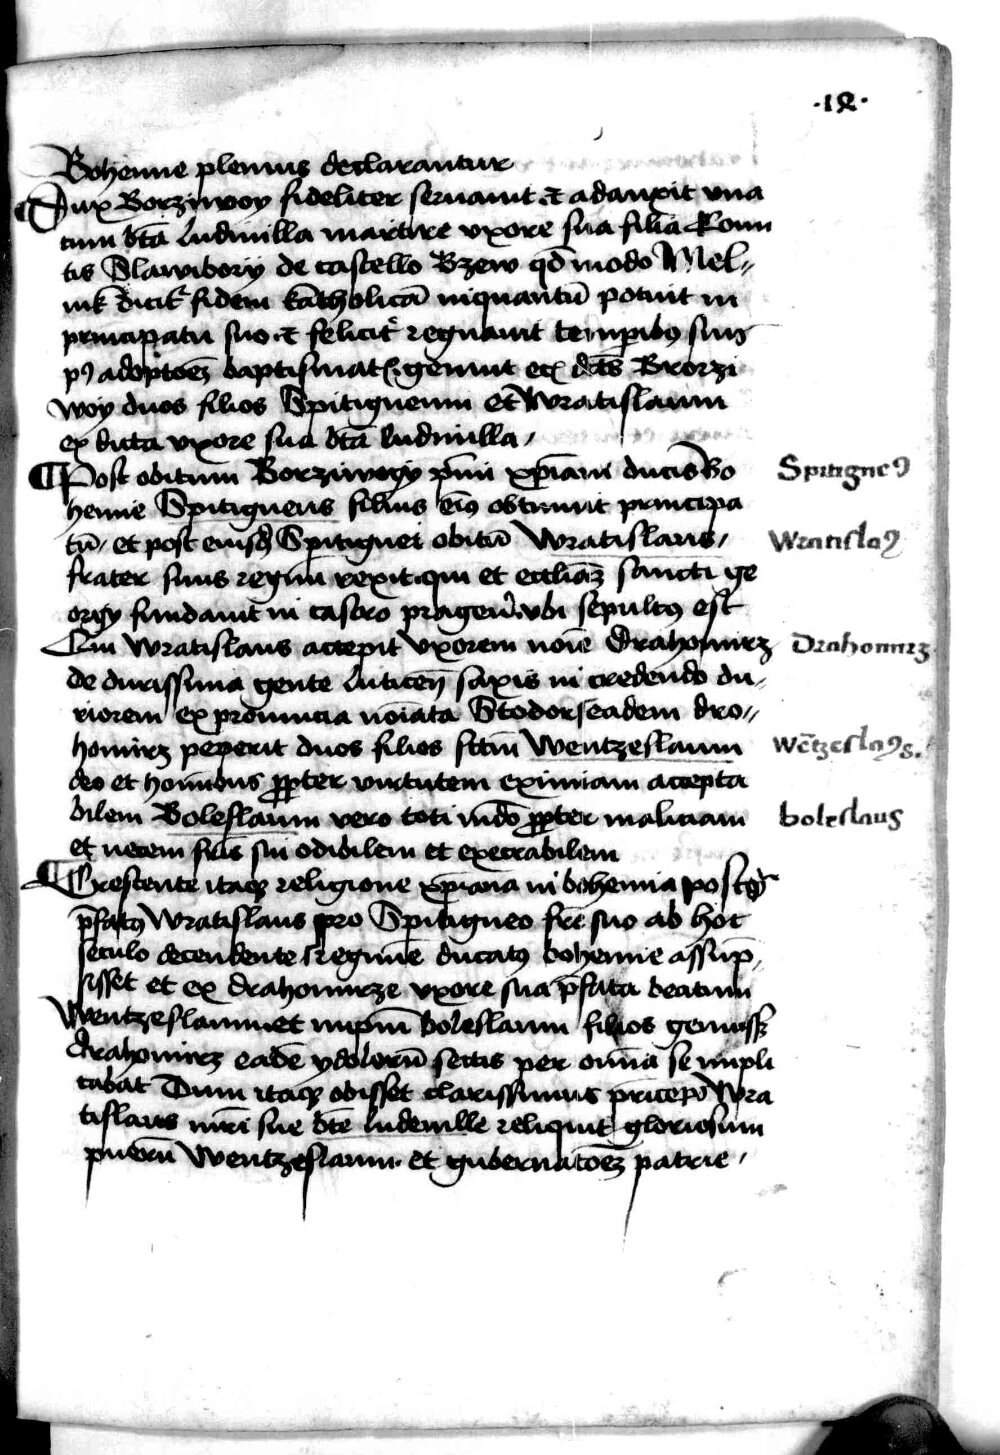 ·12·
Bohemie plenius declarantur
Dux Borziwoy fideliter seruauit et adauxit vna
cum bt̄a Ludmilla martire vxore sua filia Comi
tis Slawibory de castello Bzew qd̄ modo Mel„
nik dicit᷑ fidem katholicā inquantū potuit in
principatu suo et felicit᷑ regnauit temporibꝰ suis
pꝰ adoptōeꝫ baptismatꝭ genuit ec̄ dc̄s Brorzi
woy duos filios Spitigneum et Wratislaum
ex dicta vxore sua bt̄a ludmilla /
Post obitum Borziwogy pͥmi xp̄iani ducis Bo
hemie Spitigneus filius eiꝰ obtinuit principa
tū / et post eiusdē Spitignei obitū Wratislaus /
frater suus regimē rexit qui et eccliaꝫ sancti ge
orgy fundauit in castro pragen̄ vbi sepultꝰ est
Qui Wratislaus accepit vxorem noīe Drahomirz
de durissima gente luticen̄ saxis in credendo du„
riorem ex prouincia noīata Stodor eadem dro„
homirz peperit duos filios sctm̄ Wentzeslaum
deo et hominibus ꝓpter virtutem eximiam accepta
bilem Boleslaum vero toti mūdo ꝓpter maliciam
et necem fr̄is sui odibilem et execrabilem
Crescente itaqꝫ religione xp̄iana in bohemia postqꝫ
p̄fatꝰ Wratislaus pro Spitigneo fr̄e suo ab hoc
seculo decendente regimē ducatꝰ bohemie assūp„
sisset et ex drahomirze vxore sua p̄fata beatum
Wentzeslaum et impiū boleslaum filios genuissꝫ
drahomirz eadē ydolorū sectis per omnia se impli
cabat Dum itaqꝫ obisset clarissimus princeps Wra
tislaus mr̄i sue bt̄e ludemille reliquit gloriosum
puerū Wentzeslaum et gubernatōeꝫ patrie /
Spitigneꝰ
Wratislaꝰ
Drahomirz
Wētzeslaꝰs.
boleslaus